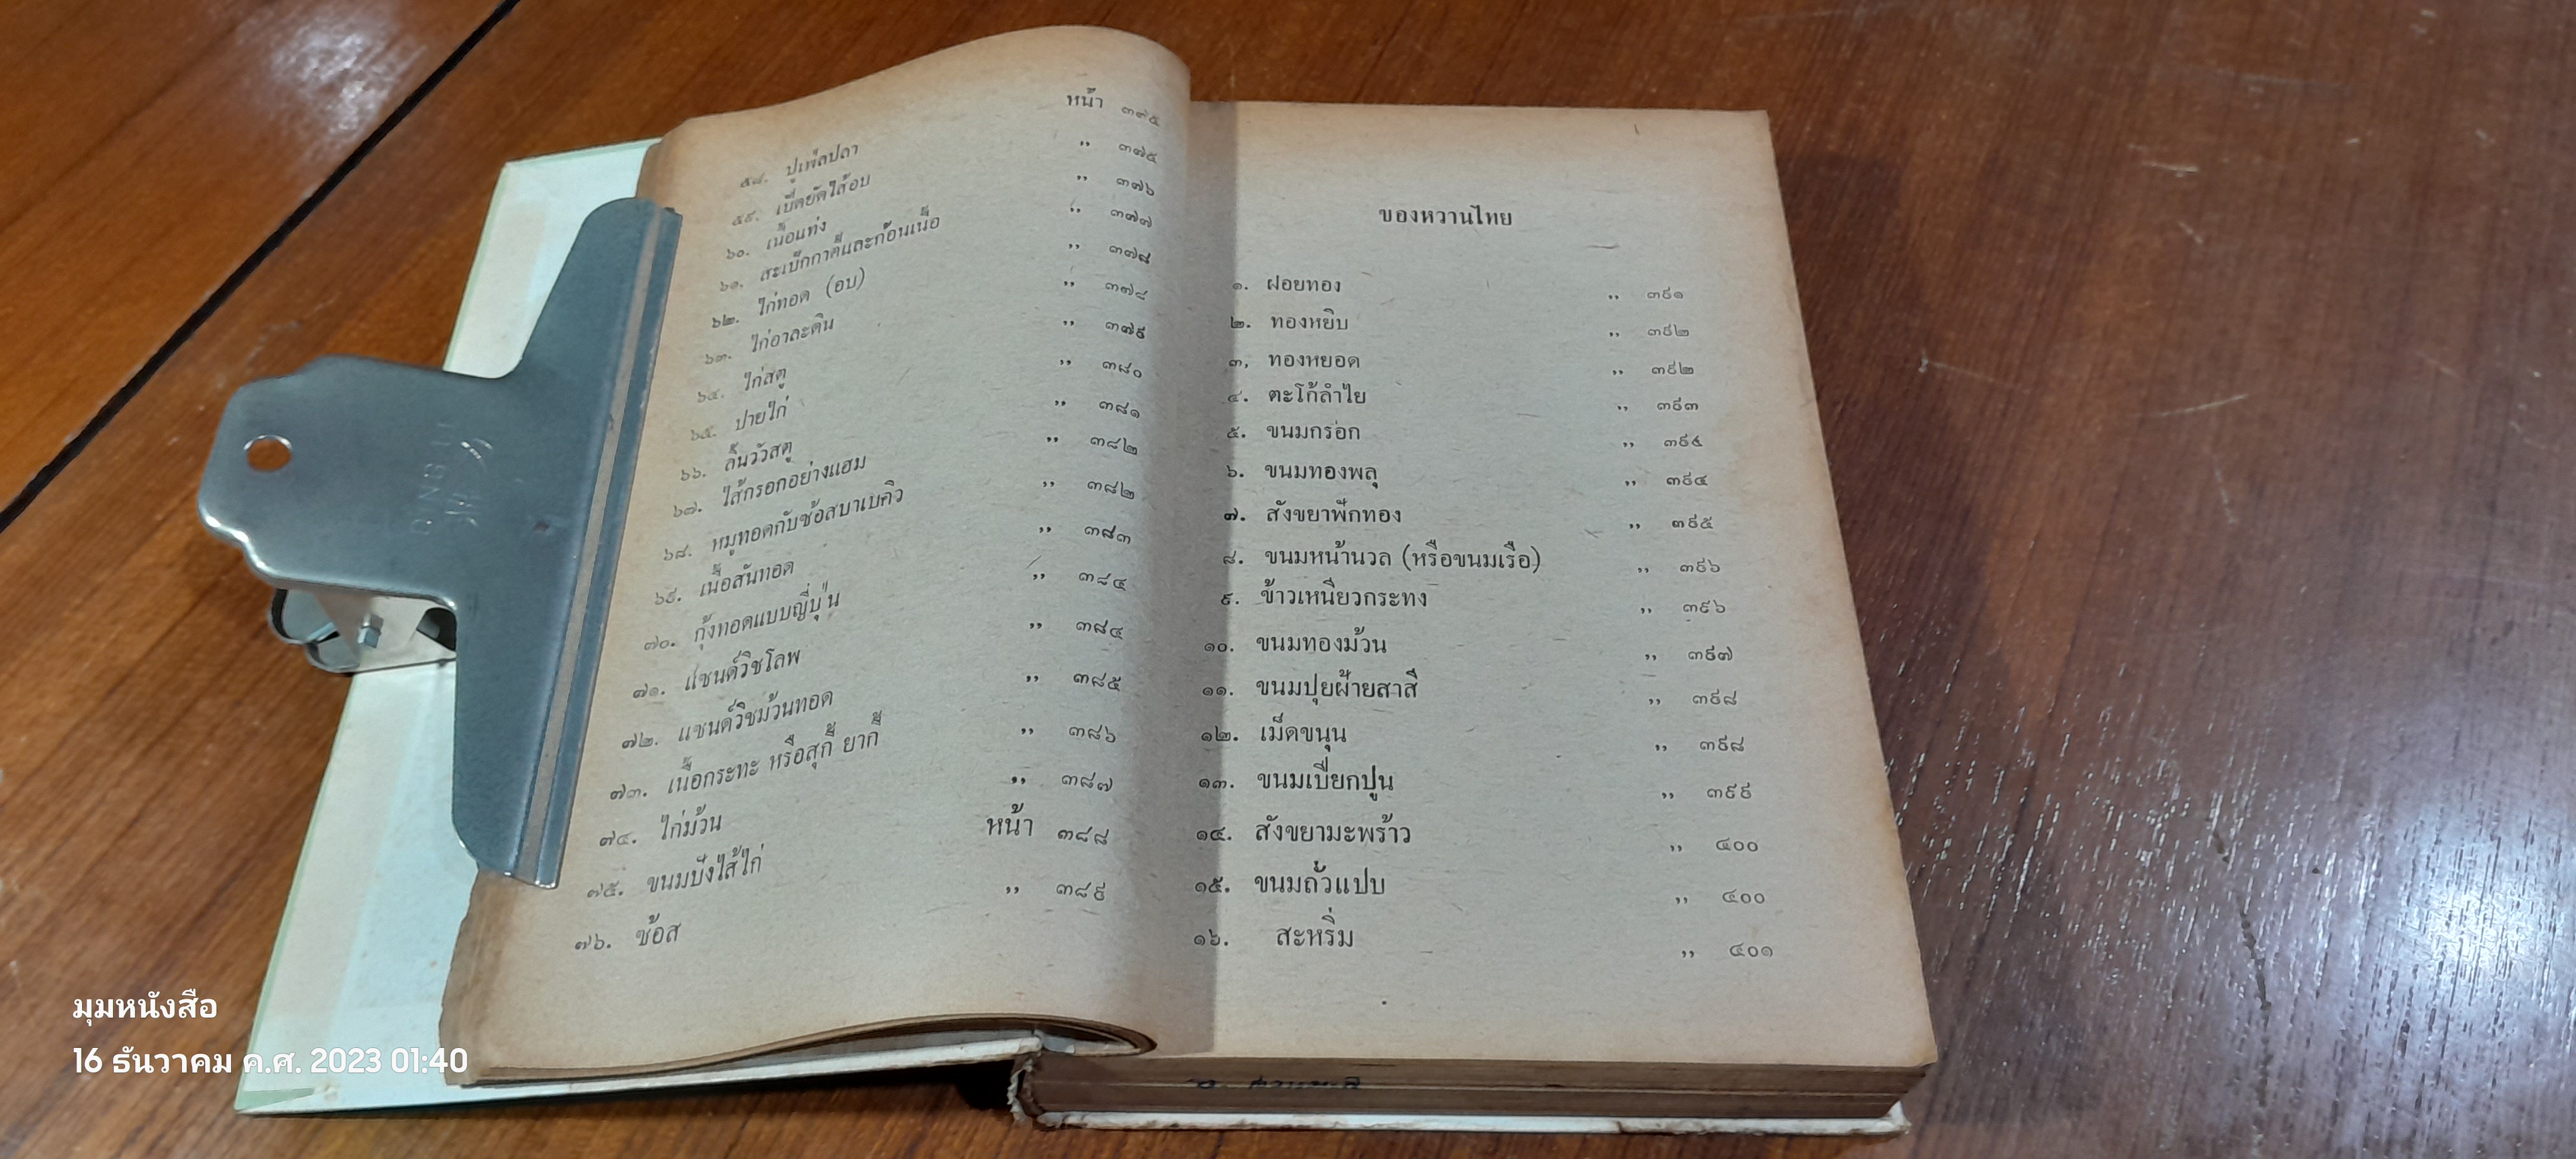 ๕๘. ปูเพ็ลปลา หน้า ๓๙๕
๕๙. เป็ดยัดไส้อบ ,, ๓๗๕
๖๐. เนื้อแท่ง ,, ๓๗๖
๖๑. สะเบ๊กกาตี้และก้อนเนื้อ ,, ๓๗๗
๖๒. ไก่ทอด (อบ) ,, ๓๗๘
๖๓. ไก่อาละดิน ,, ๓๗๘
๖๔. ไก่สตู ,, ๓๗๙
๖๕. ปายไก่ ,, ๓๘๐
๖๖. ลิ้นวัวสตู ,, ๓๘๑
๖๗. ไส้กรอกอย่างแฮม ,, ๓๘๒
๖๘. หมูทอดกับซ้อสบาเบคิว ,, ๓๘๒
๖๙. เนื้อสันทอด ,, ๓๘๓
๗๐. กุ้งทอดแบบญี่ปุ่น ,, ๓๘๔
๗๑. แซนด์วิชโลพ ,, ๓๘๔
๗๒. แซนด์วิชม้วนทอด ,, ๓๘๕
๗๓. เนื้อกระทะ หรือสุกี้ ยากี้ ,, ๓๘๖
๗๔. ไก่ม้วน ,, ๓๘๗
๗๕. ขนมปังไส้ไก่ หน้า ๓๘๘
๗๖. ซ้อส ,, ๓๘๙
ของหวานไทย
๑. ฝอยทอง ,, ๓๙๑
๒. ทองหยิบ ,, ๓๙๒
๓, ทองหยอด ,, ๓๙๒
๔. ตะโก้ลำไย ,, ๓๙๓
๕. ขนมกรอก ,, ๓๙๔
๖. ขนมทองพลุ ,, ๓๙๔
๗. สังขยาฟักทอง ,, ๓๙๕
๘. ขนมหน้านวล (หรือขนมเรือ) ,, ๓๙๖
๙. ข้าวเหนียวกระทง ,, ๓๙๖
๑๐. ขนมทองม้วน ,, ๓๙๗
๑๑. ขนมปุยฝ้ายสาลี่ ,, ๓๙๘
๑๒. เม็ดขนุน ,, ๓๙๘
๑๓. ขนมเปียกปูน ,, ๓๙๙
๑๔. สังขยามะพร้าว ,, ๔๐๐
๑๕. ขนมถั่วแปบ ,, ๔๐๐
๑๖. สะหริ่ม ,, ๔๐๑
มุมหนังสือ
16 ธันวาคม ค.ศ. 2023 01:40